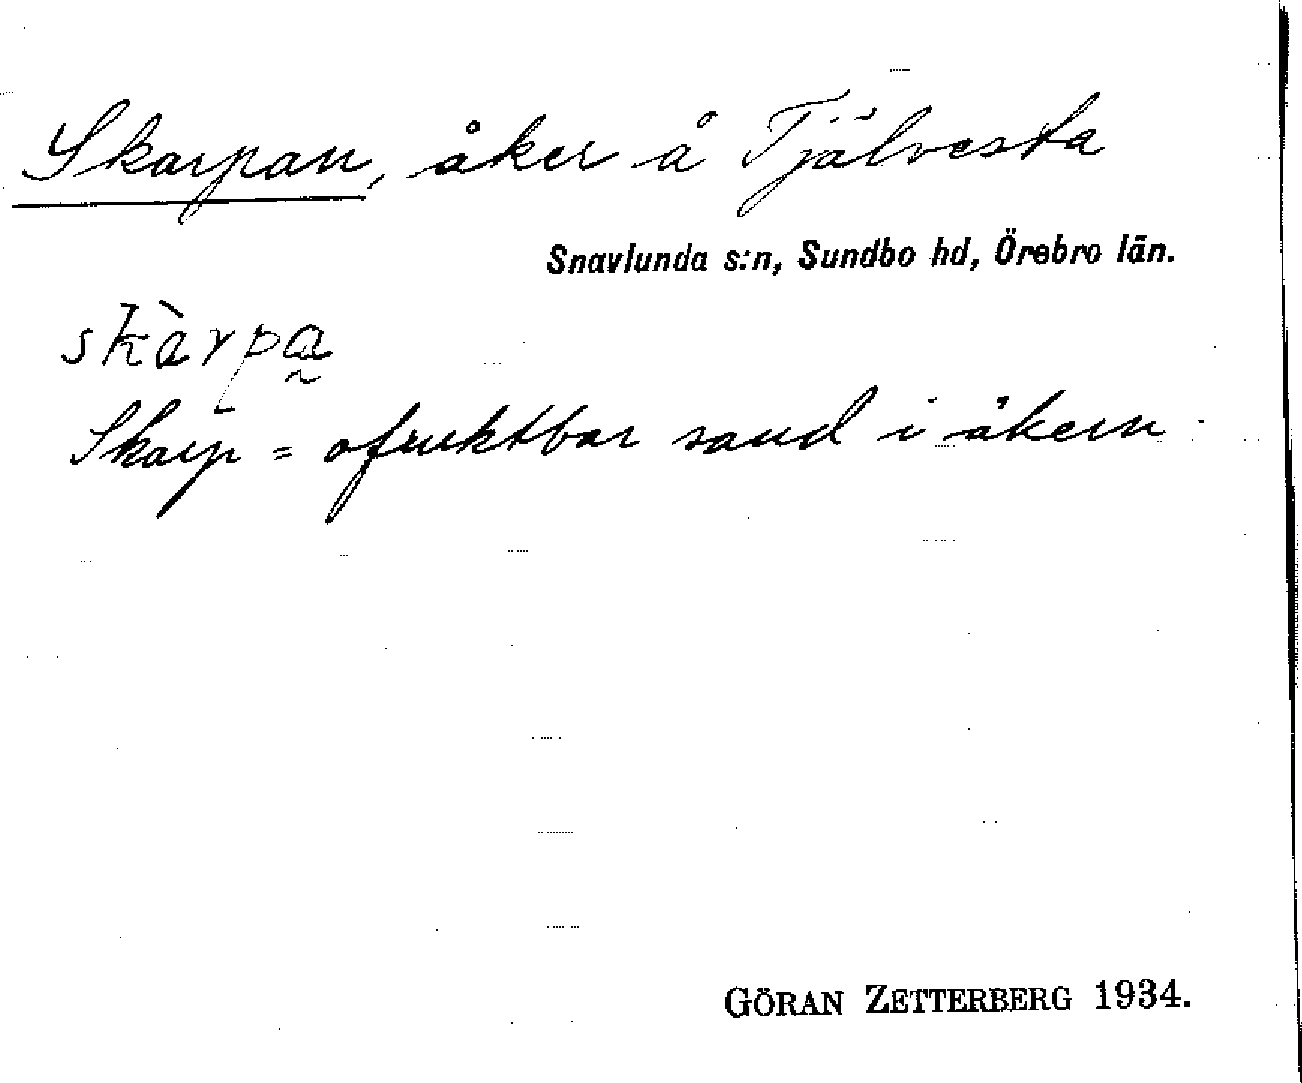 Skarpan, åker å Tjälvesta
Snavlunda s:n, Sundbo hd, Örebro län.
skàrpa̰
Skarp = ofruktbar sand i åkern
GÖRAN ZETTERBERG 1934.